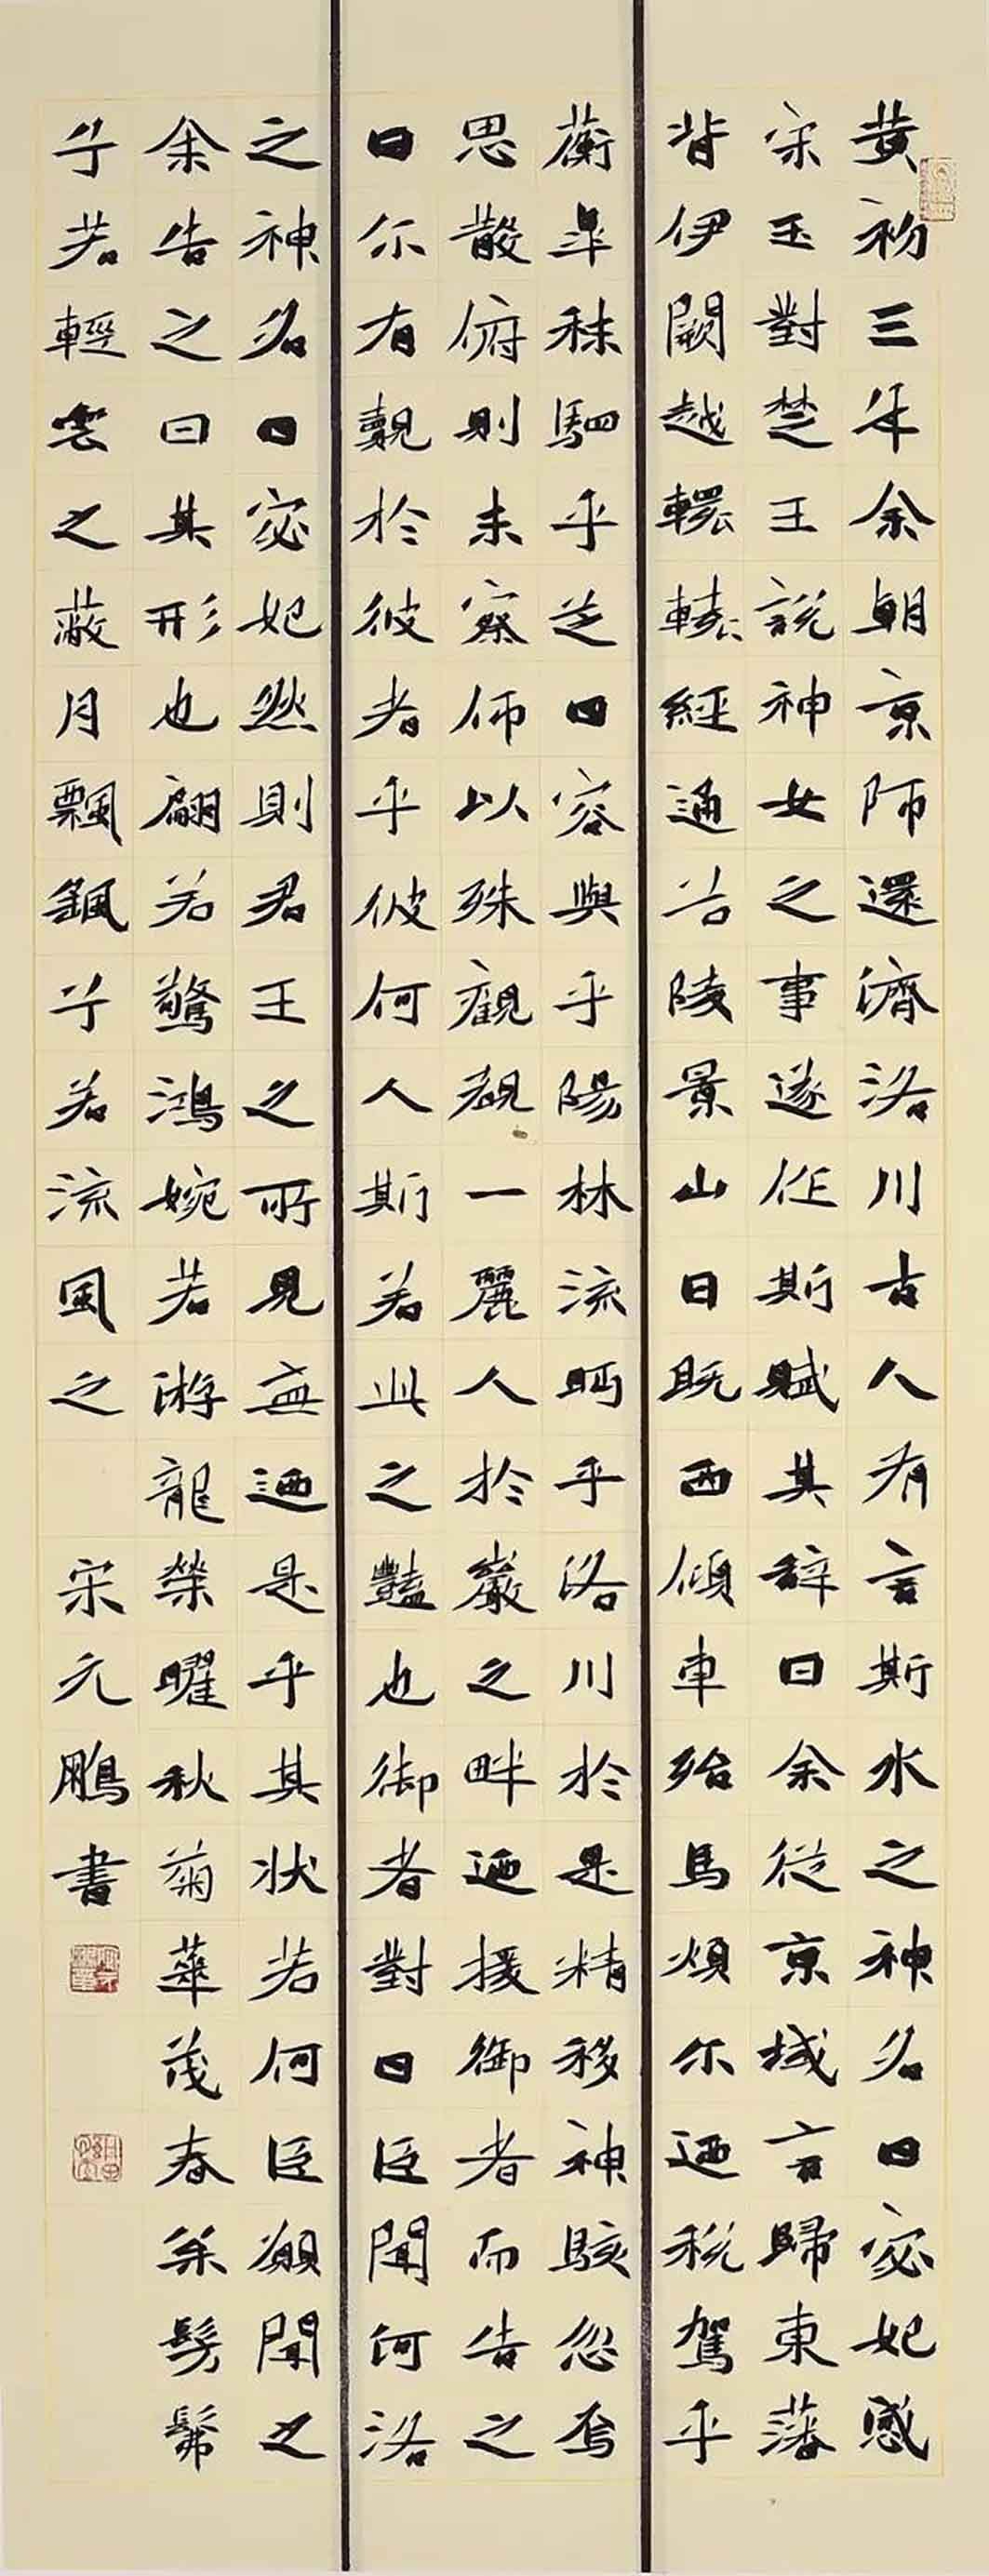 黄初三年余朝京師還濟洛川古人有言斯水之神名曰宓妃感
宋玉對楚王說神女之事遂作斯賦其辭曰余從京域言歸東藩
背伊闕越轘轅經通谷陵景山日既西傾車殆馬煩尔迺稅駕乎
蘅皋秣駟乎芝田容與乎陽林流眄乎洛川於是精移神駭忽焉
思散俯則未察仰以殊觀覩一麗人於巖之畔迺援御者而告之
曰尔有覿於彼者乎彼何人斯若此之豔也御者對曰臣聞河洛
之神名曰宓妃然則君王之所見無迺是乎其状若何臣願聞之
余告之曰其形也翩若驚鴻婉若游龍榮曜秋菊華茂春松髣髴
兮若輕雲之蔽月飄颻兮若流風之 宋元鵬書